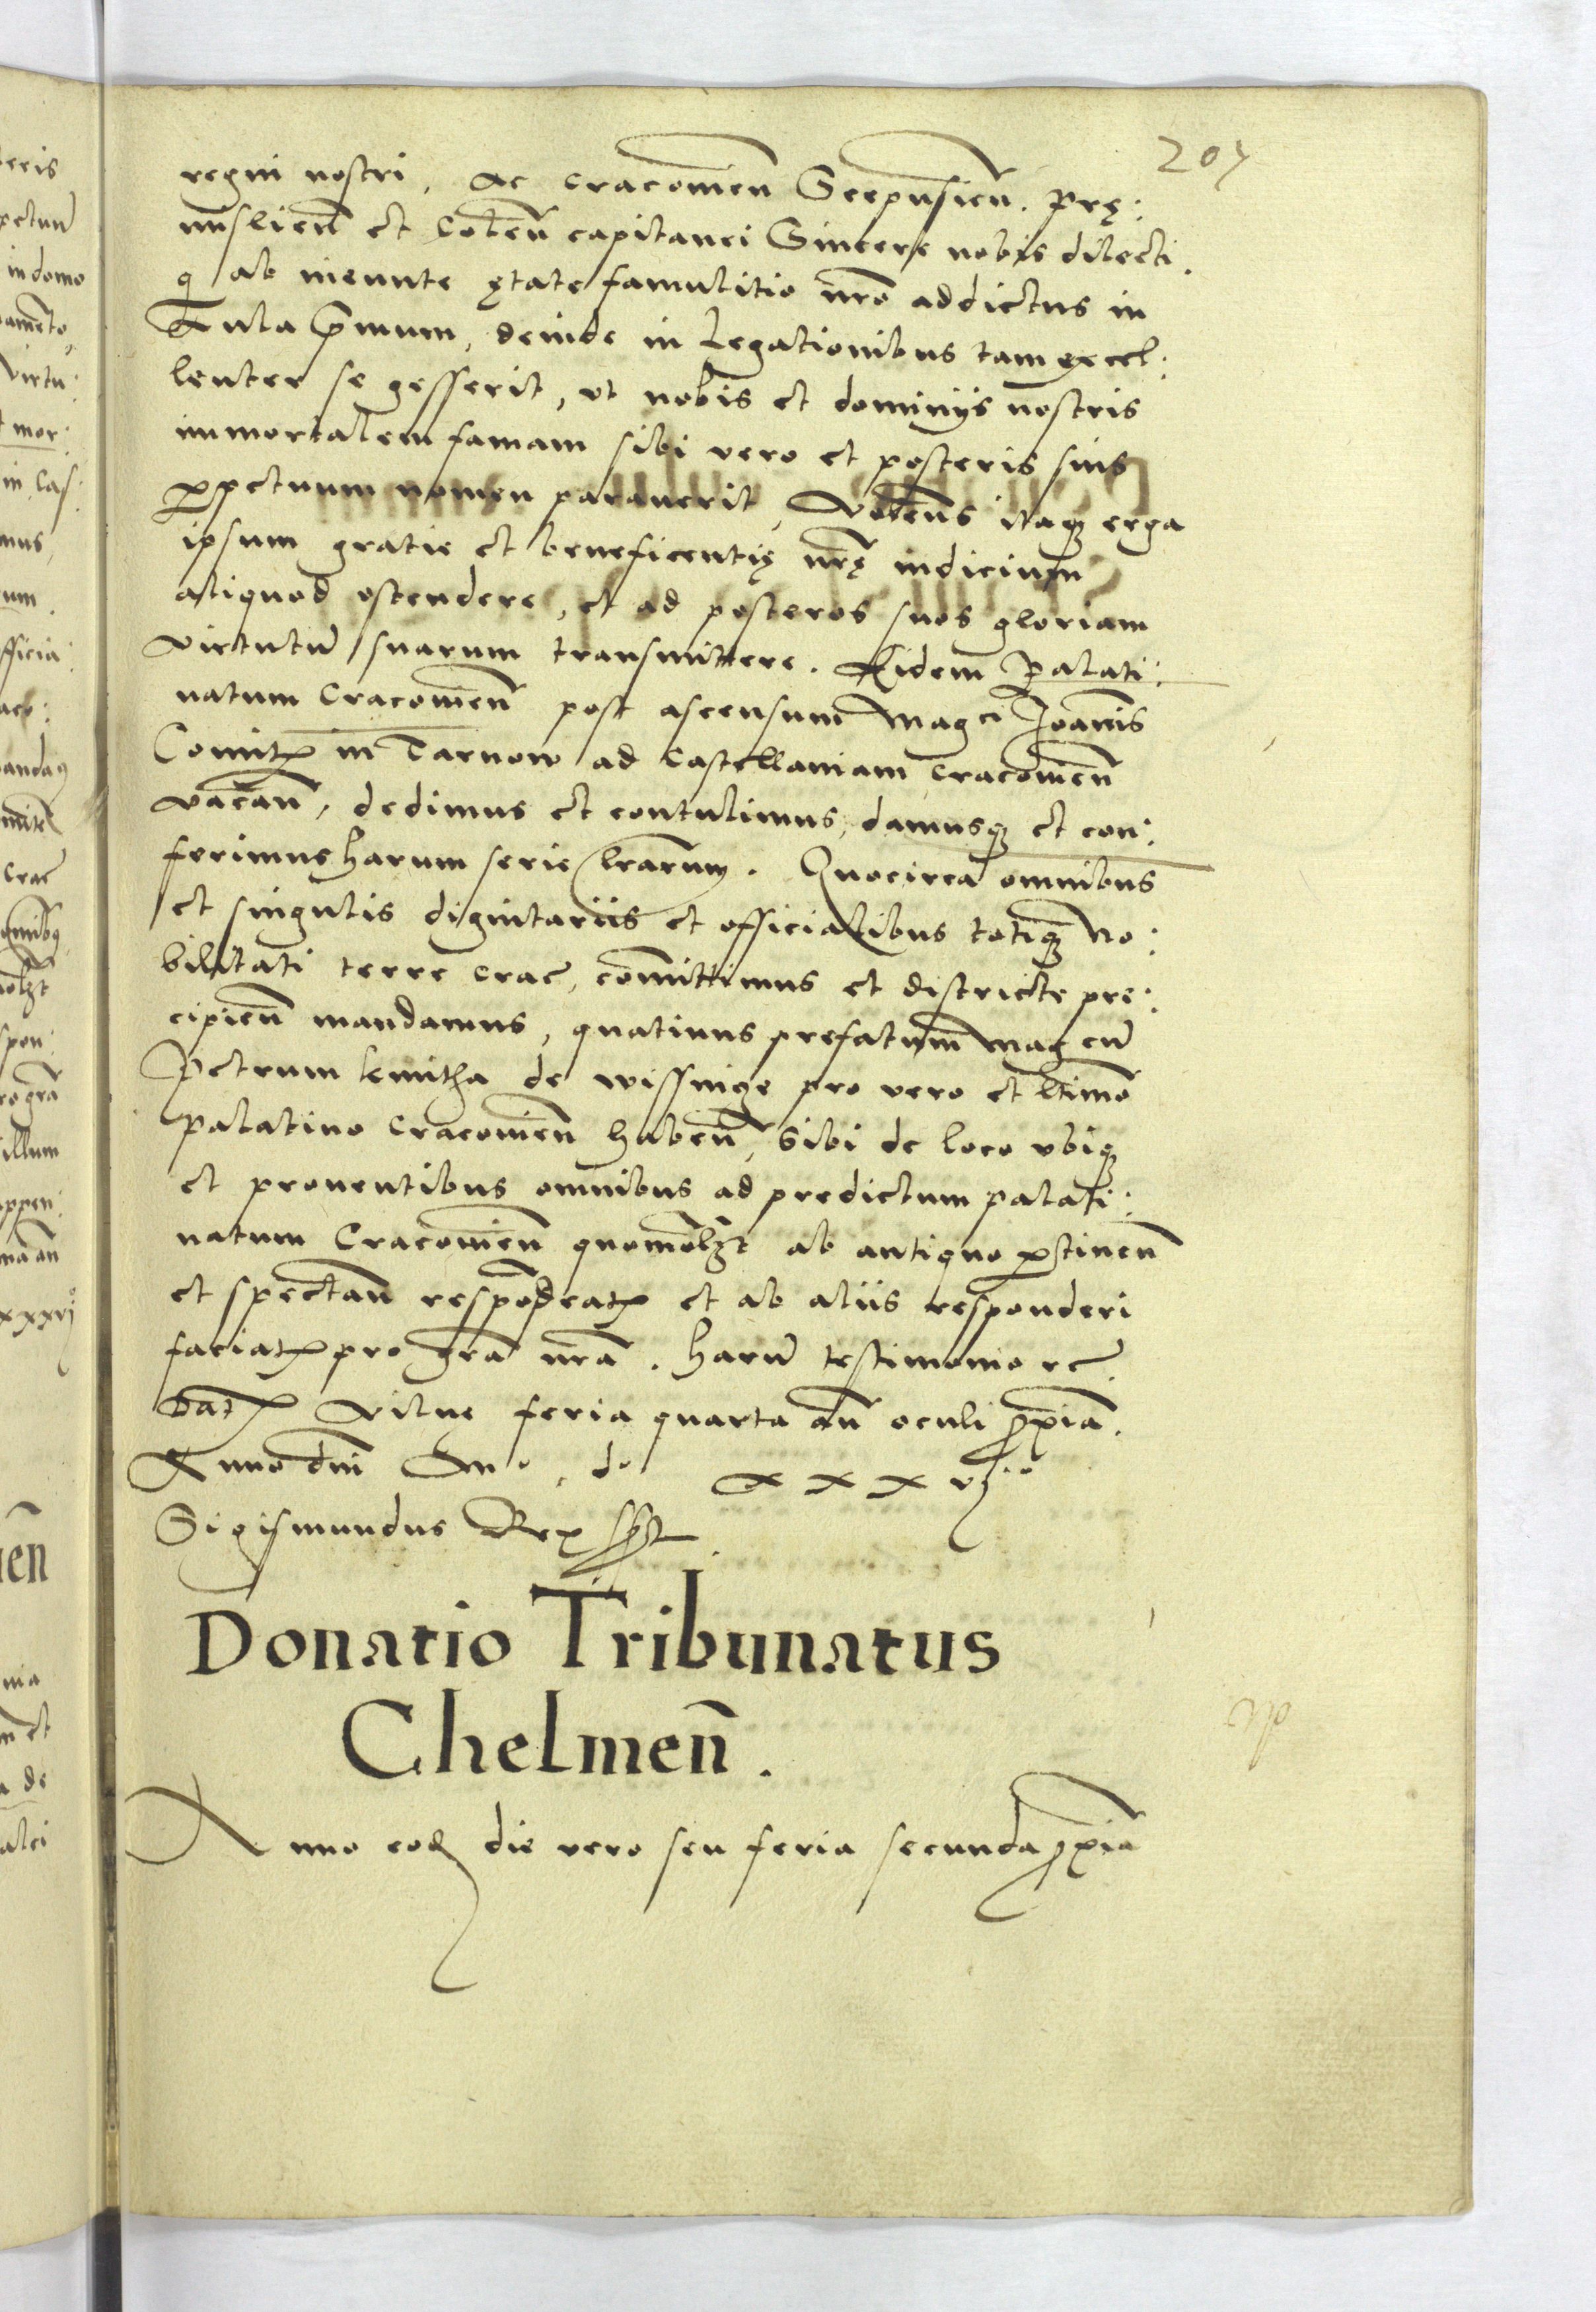 207
regni nostri, ac Cracovień Scepusień. Prę:
mislień et Coleń capitanei Sincere nobis dilecti.
q ab ineunte ętate famulitio nrō addictus in
Aula p̄mum, deinde in Legationibus tam excel:
lenter se gesserit, ut nobis et dominijs nostris
immortalem famam sibi vero et posteris suis
ꝑpetuum nomen paraverit, Voleńs itaqꝫ erga
ipsum gratie et beneficentię nrę̄ indicium
aliquod ostendere, et ad posteros suos gloriam
virtutū suarum transmittere. Eidem Palati:
natum Cracovień post ascensum Magci Joannis
Comitꝭ in Tarnow ad Castellaniam Cracovień
vacań, dedimus et contulimus, damusqꝫ et con:
ferimus harum serie lrārum. Quocirca omnibus
et singulis dignitariis et officialibus totiqꝫ No:
bilitati terre Crac̄, com̄ittimus et districte pre:
cipień mandamus, quatinus prefatum Magcū
Petrum kmitha de wissnicze pro vero et lt̄imo
palatino Cracovień habeń, Sibi de loco ubiqꝫ
et proventibus omnibus ad predictum palati:
natum Cracovień quomōlꝫt ab antiquo ꝑtineń
et spectań respōdeatꝭ et ab aliis responderi
faciatꝭ pro grā nrā. Harū testimonio rc̄
Datꝭ Vilnę feria quarta añ oculi ꝓxia.
Anno dn̄i Mo. do xxxvjto
Sigismundus Rex sst
Donatio Tribunatus
Chelmeñ.
Anno eod̄ die vero seu feria secunda ꝓxia